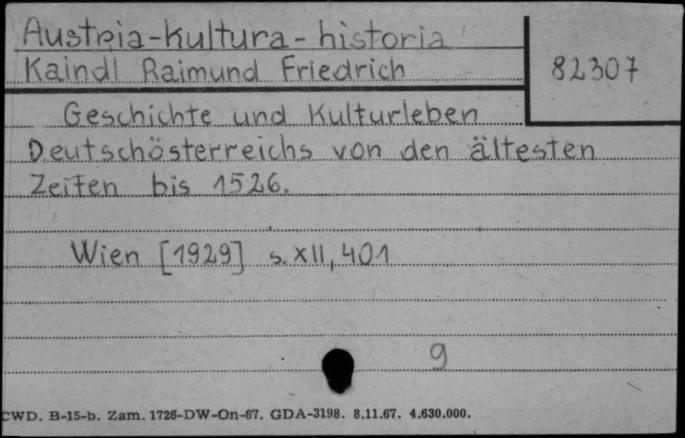 Austria-kultura-historia
Kaindl Raimund Friedrich
82307
Geschichte und Kulturleben
Deutschösterreichs von den ältesten
Zeiten bis 1526.
Wien [1929] s. XII, 401
9
CWD. B-15-b. Zam. 1726-DW-On-67. GDA-3198. 8.11.67. 4.630.000.